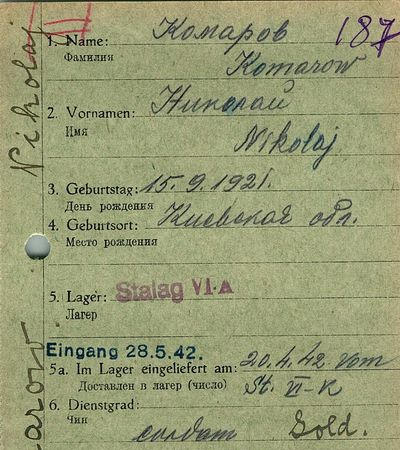 Комаров 187
1. Name:
Фамилия Komarow
2. Vornamen: Николай
Имя
Nikolaj
3. Geburtstag: 15.9.1921.
День рождения
4. Geburtsort: Киевская обл.
Место рождения
5. Lager: Stalag VI-A
Лагер
Eingang 28.5.42.
5a. Im Lager eingeliefert am: 20.4.42 vom
Доставлен в лагер (число) St. VI-K
6. Dienstgrad:
Чин солдат Sold.
Nikolaj
arow